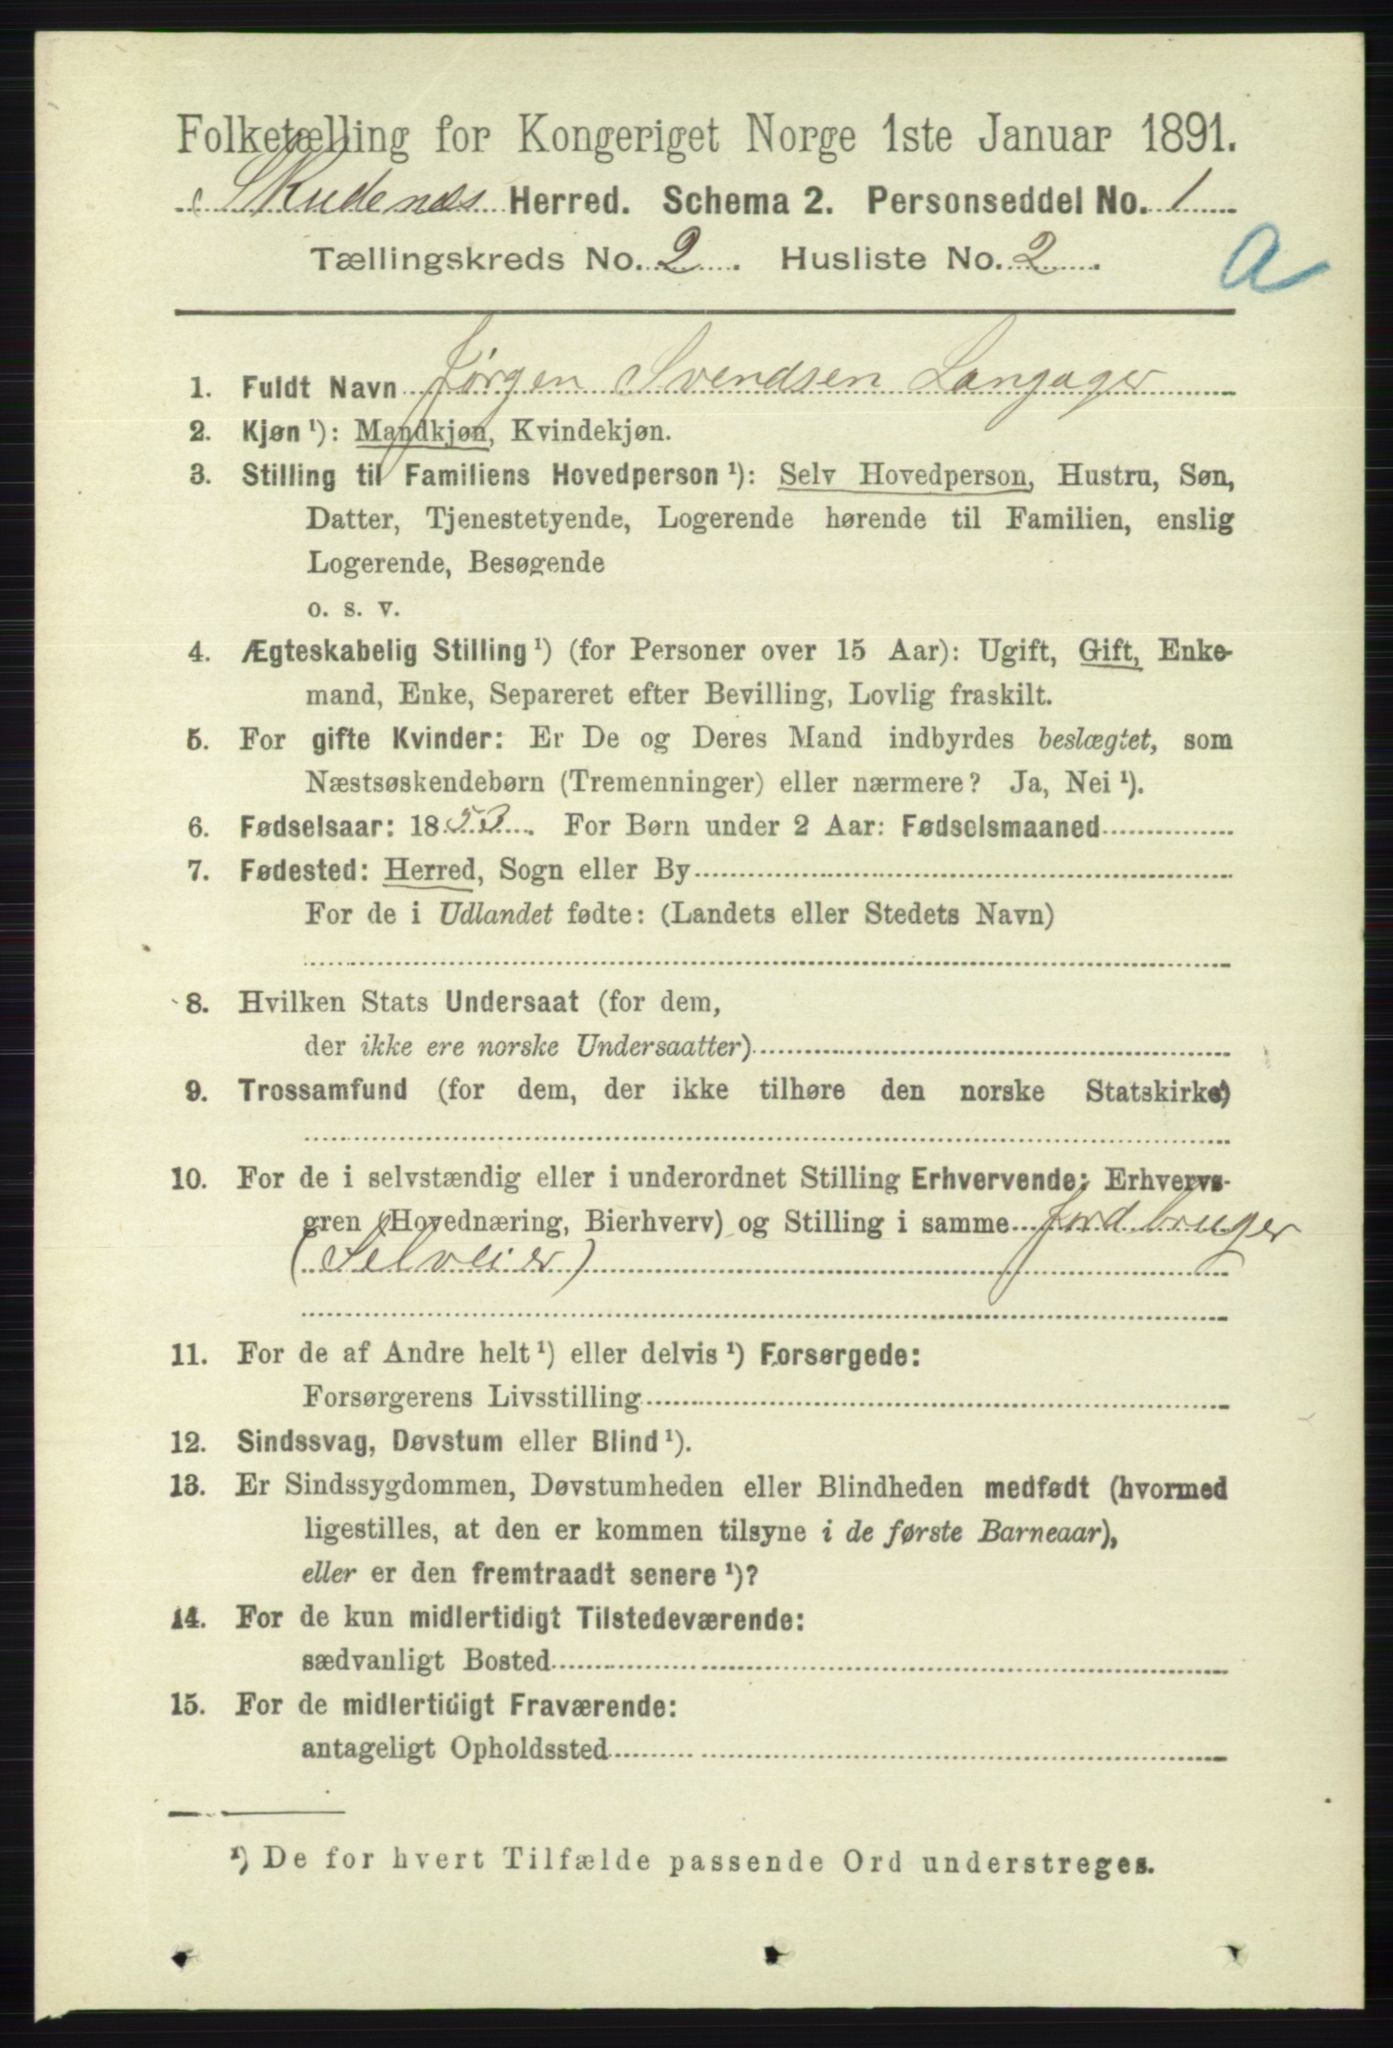 Folketælling for Kongeriget Norge 1ste Januar 1891.
Skudenæs Herred. Schema 2. Personseddel No. 1
Tællingskreds No. 2. Husliste No. 2.
a
1. Fuldt Navn Jørgen Svendsen Langager
2. Kjøn ¹): Mandkjøn, Kvindekjøn.
3. Stilling til Familiens Hovedperson ¹): Selv Hovedperson, Hustru, Søn,
Datter, Tjenestetyende, Logerende hørende til Familien, enslig
Logerende, Besøgende
o. s. v.
4. Ægteskabelig Stilling ¹) (for Personer over 15 Aar): Ugift, Gift, Enke-
mand, Enke, Separeret efter Bevilling, Lovlig fraskilt.
5. For gifte Kvinder: Er De og Deres Mand indbyrdes beslægtet, som
Næstsøskendebørn (Tremenninger) eller nærmere? Ja, Nei ¹).
6. Fødselsaar: 1853. For Børn under 2 Aar: Fødselsmaaned
7. Fødested: Herred, Sogn eller By
For de i Udlandet fødte: (Landets eller Stedets Navn)
8. Hvilken Stats Undersaat (for dem,
der ikke ere norske Undersaatter)
9. Trossamfund (for dem, der ikke tilhøre den norske Statskirke)
10. For de i selvstændig eller i underordnet Stilling Erhvervende: Erhvervs-
gren (Hovednæring, Bierhverv) og Stilling i samme Jordbruger
(Selveier)
11. For de af Andre helt ¹) eller delvis ¹) Forsørgede:
Forsørgerens Livsstilling
12. Sindssvag, Døvstum eller Blind ¹).
13. Er Sindssygdommen, Døvstumheden eller Blindheden medfødt (hvormed
ligestilles, at den er kommen tilsyne i de første Barneaar),
eller er den fremtraadt senere ¹)?
14. For de kun midlertidigt Tilstedeværende:
sædvanligt Bosted
15. For de midlertidigt Fraværende:
antageligt Opholdssted
¹) De for hvert Tilfælde passende Ord understreges.